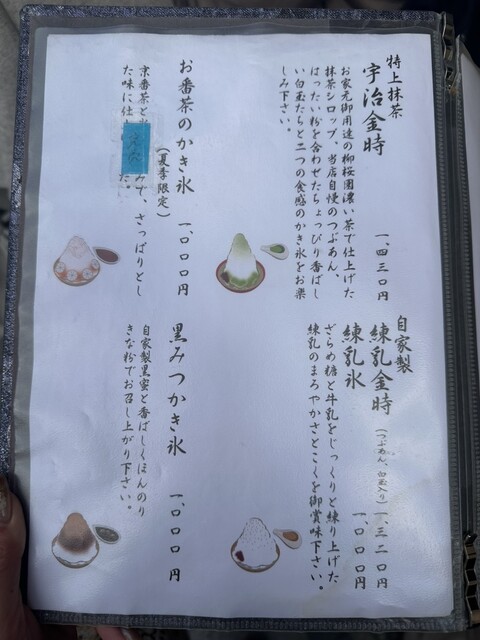 特上抹茶
宇治金時
一、四三〇円
お家元御用達の柳桜園濃い茶で仕上げた
抹茶シロップ、当店自慢のつぶあん、
はったい粉を合わせたちょっぴり香ばし
い白玉たちと二つの食感のかき氷をお楽
しみ下さい。
お番茶のかき氷
(夏季限定)
一、〇〇〇円
京番茶と
みで、さっぱりとし
た味に仕
た。
自家製
練乳金時
(つぶあん、白玉入り)
一、三二〇円
練乳氷
一、〇〇〇円
ざらめ糖と牛乳をじっくりと練り上げた
練乳のまろやかさとこくを御賞味下さい。
黒みつかき氷
一、〇〇〇円
自家製黒蜜と香ばしくほんのり
きな粉でお召し上がり下さい。